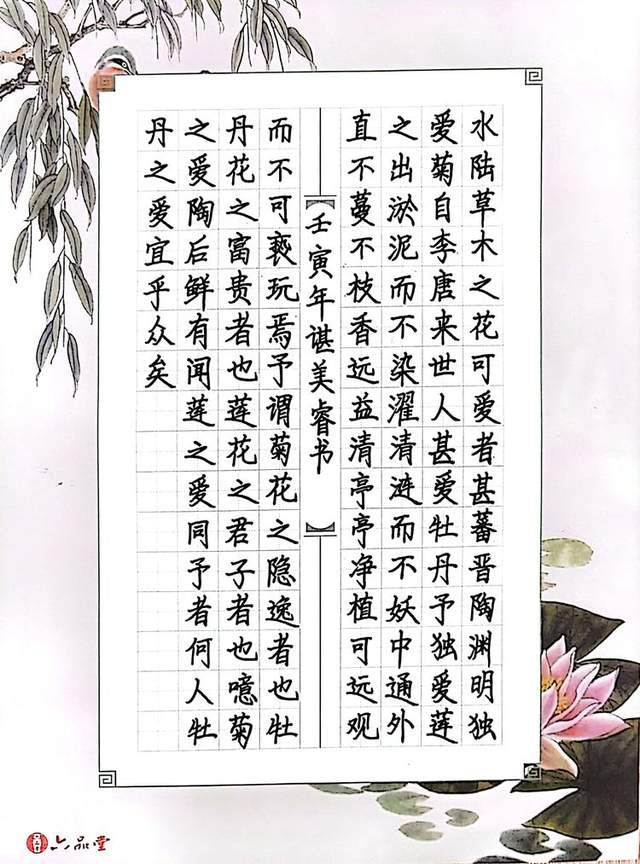 水陆草木之花可爱者甚蕃晋陶渊明独
爱菊自李唐来世人甚爱牡丹予独爱莲
之出淤泥而不染濯清涟而不妖中通外
直不蔓不枝香远益清亭亭净植可远观
壬寅年谌美睿书
而不可亵玩焉予谓菊花之隐逸者也牡
丹花之富贵者也莲花之君子者也噫菊
之爱陶后鲜有闻莲之爱同予者何人牡
丹之爱宜乎众矣
六品堂